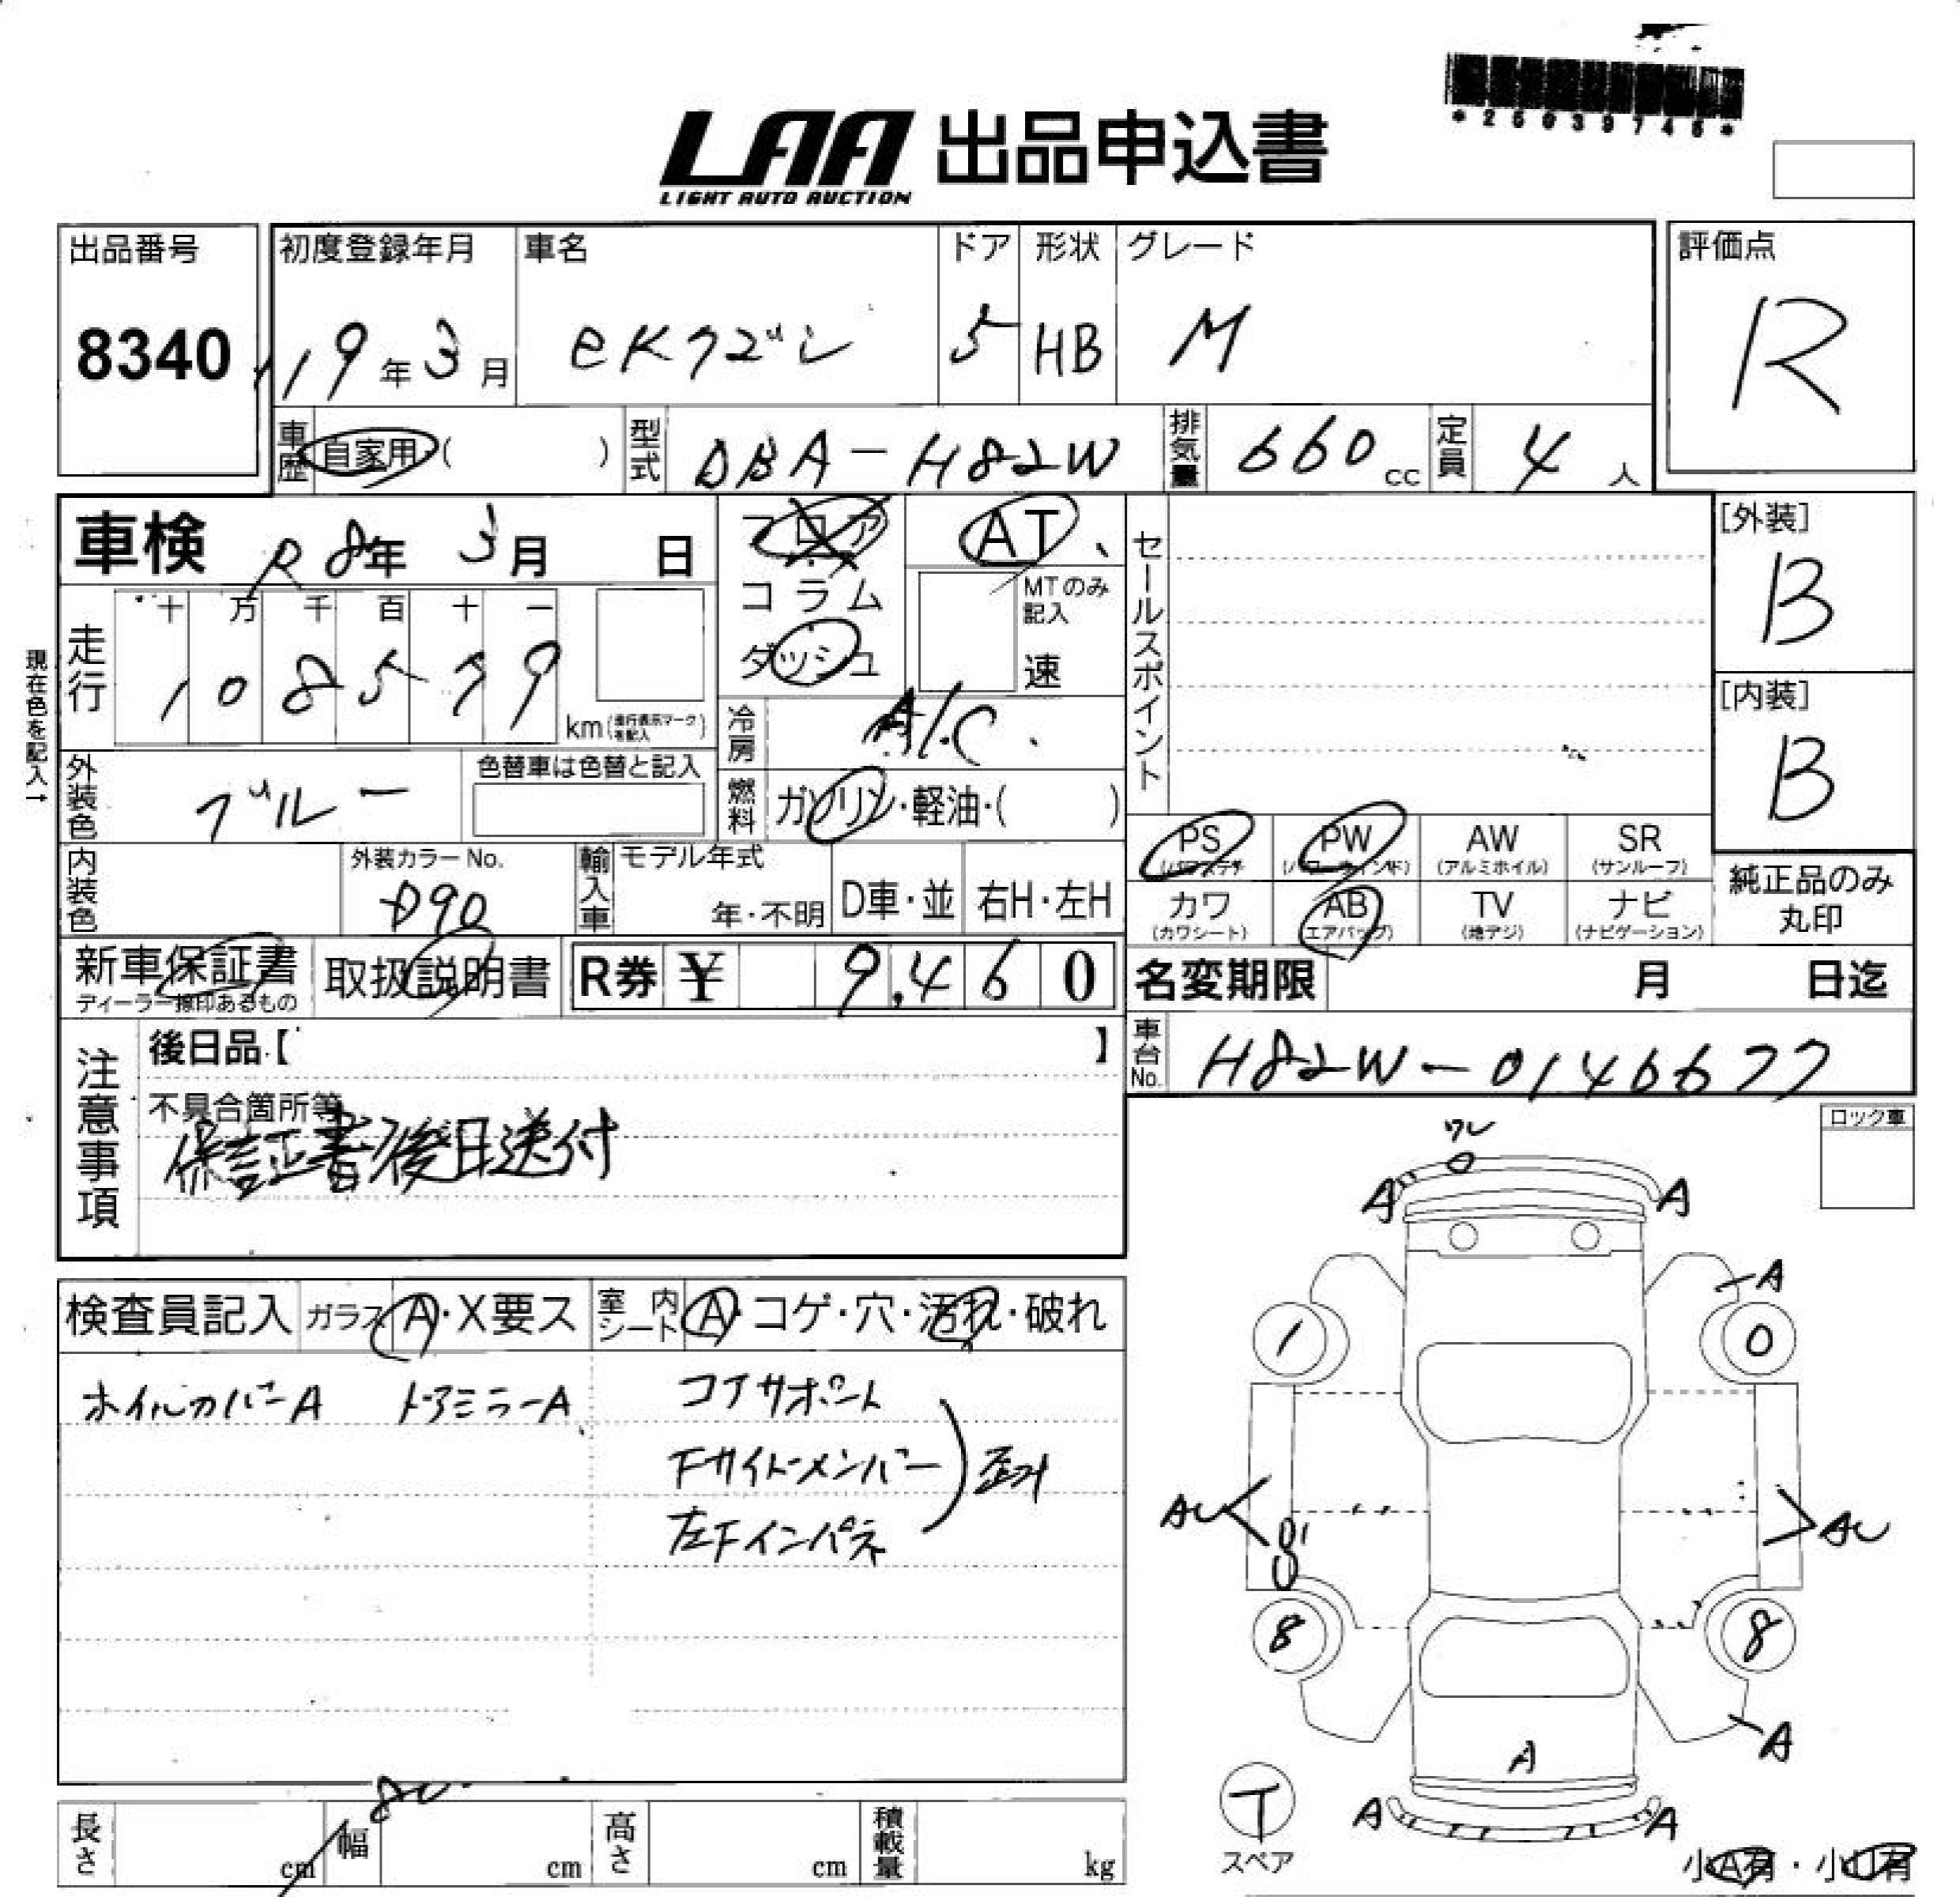 *25039745*
LAA 出品申込書
LIGHT AUTO AUCTION
出品番号
8340
初度登録年月
19年3月
車名
eKワゴン
ドア
5
形状
HB
グレード
M
評価点
R
車歴 自家用( )
型式 DBA-H82W
排気量 660cc
定員 4人
車検 R8年3月 日
フロア
コラム
ダッシュ
AT
MTのみ記入
速
セールスポイント
[外装]
B
[内装]
B
現在色を記入→
走行
十 万 千 百 十 一
108579
km(走行表示マークを記入)
冷房 A/C
外装色 ブルー
色替車は色替と記入
燃料 ガソリン・軽油・( )
内装色
外装カラーNo.
D90
輸入車
モデル年式
年・不明
D車・並
右H・左H
PS
(パワステ)
PW
(パワーウィンド)
AW
(アルミホイル)
SR
(サンルーフ)
カワ
(カワシート)
AB
(エアバッグ)
TV
(地デジ)
ナビ
(ナビゲーション)
純正品のみ
丸印
新車保証書
ディーラー捺印あるもの
取扱説明書
R券 ¥ 9,460
名変期限 月 日迄
注意事項
後日品【 】
不具合箇所等
保証書後日送付
車台No. H82W-0146677
ロック車
検査員記入
ガラス A・X要ス
室内シート A・コゲ・穴・汚れ・破れ
ホイルカバーA ドアミラーA
コアサポート
Fサイドメンバー
左Fインパネ
歪み
ワレ
A A
A
1 0
AU AU
8 8
A
A
A A
T
スペア
小A有・小U有
長さ cm
幅 cm
高さ cm
積載量 kg